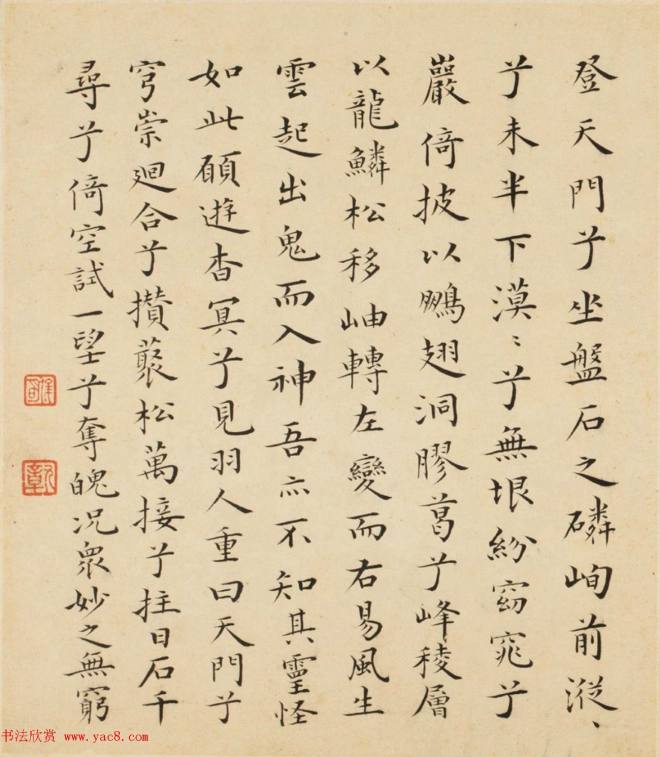 登天門兮坐盤石之磷峋前漎、
兮未半下漠ミ兮無垠紛窈窕兮
巖倚披以鵬翅洞膠葛兮峰稜層
以龍鱗松移岫轉左變而右易風生
雲起出鬼而入神吾亦不知其靈怪
如此願遊杳冥兮見羽人重曰天門兮
穹崇迴合兮攢藂松萬接兮拄日石千
尋兮倚空試一望兮奪魄况衆妙之無窮
书法欣赏 www.yac8.com